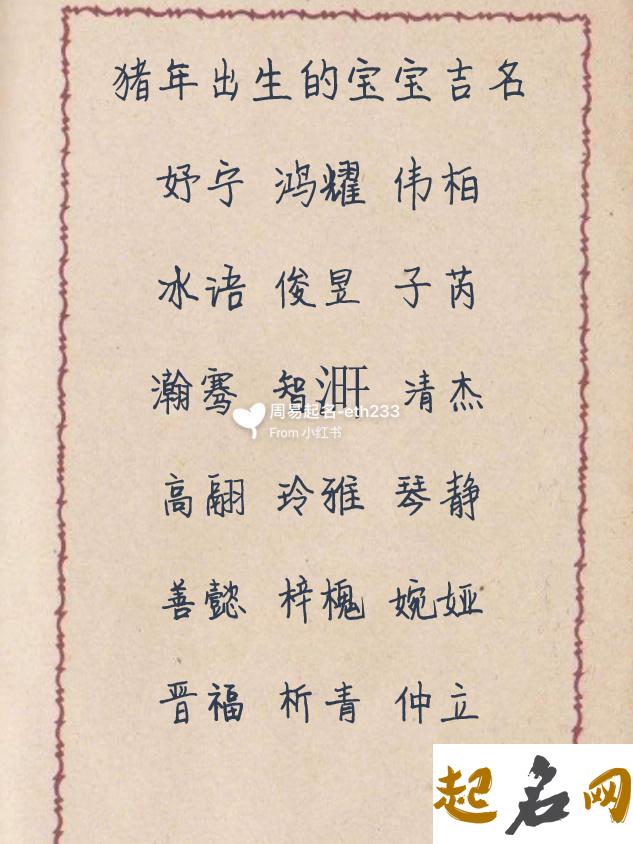 猪年出生的宝宝吉名
妤宁 鸿耀 伟柏
冰语 俊昱 子芮
瀚骞 智汧 清杰
周易起名-eth233
From 小红书
高翮 玲雅 琴静
善懿 梓槐 婉娅
晋福 析青 仲立
起名网